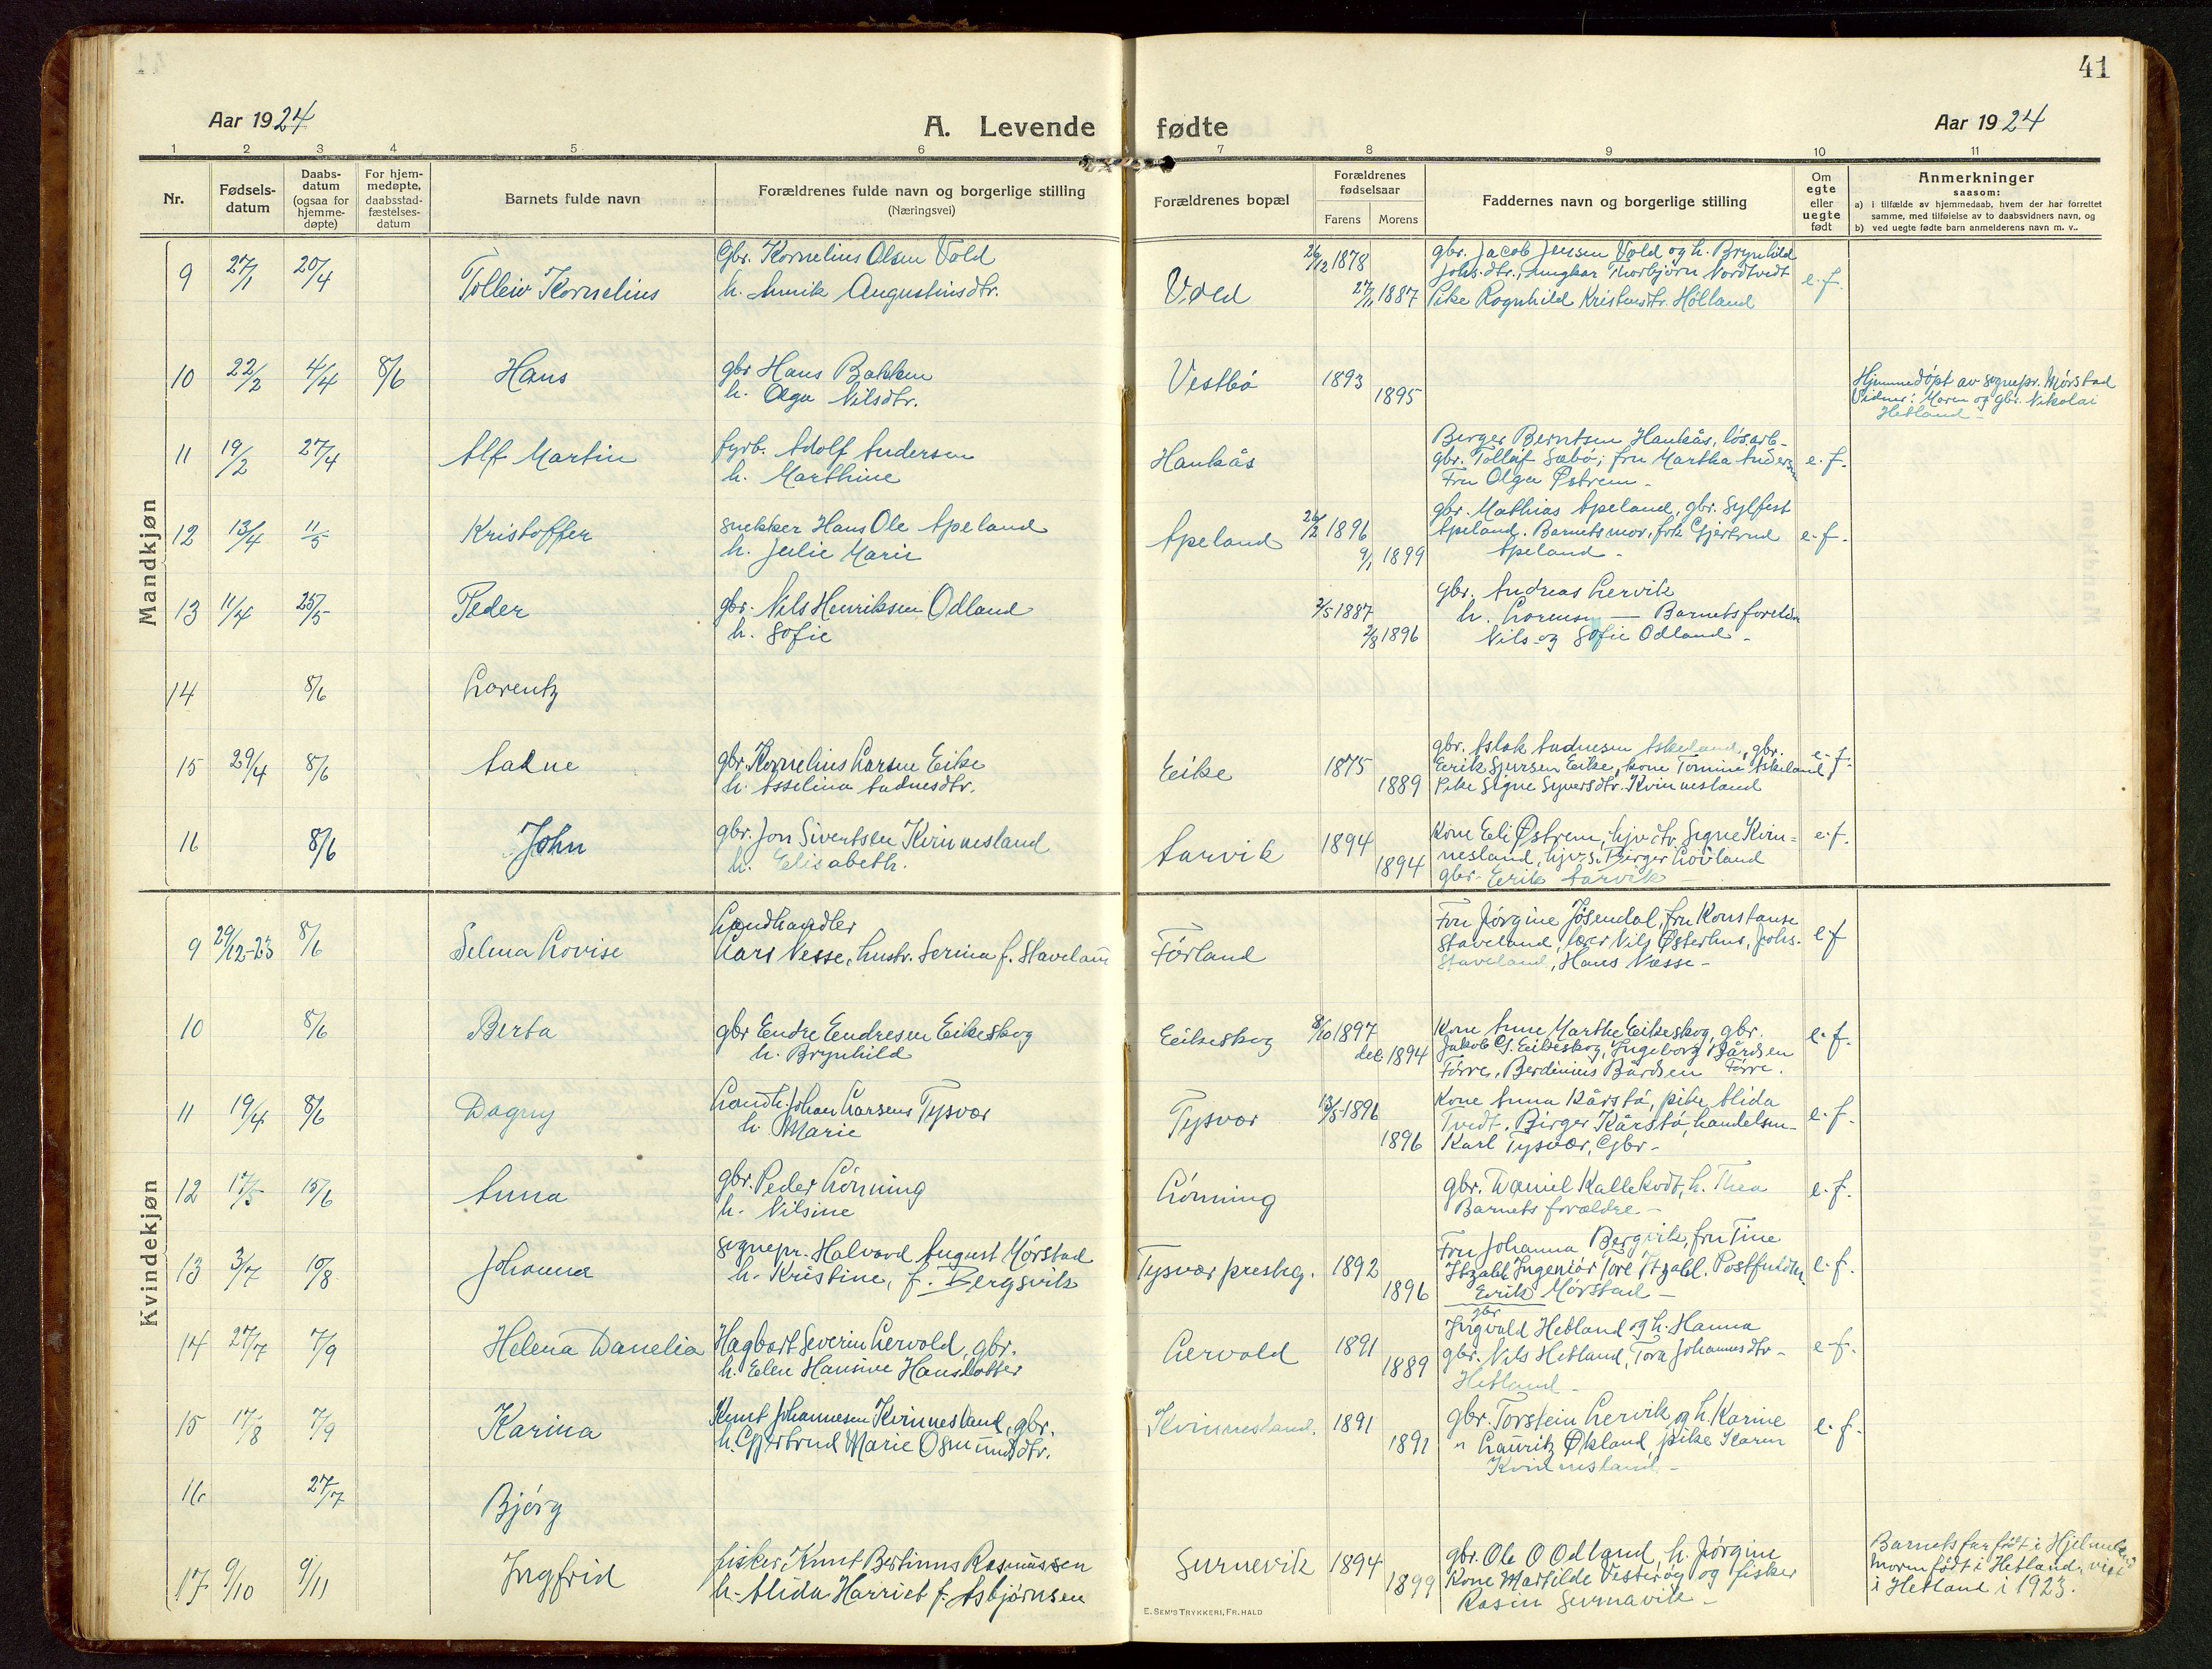 41
Aar 1924
A. Levende fødte
Aar 1924
1 2 3 4 5 6 7 8 9 10 11
Nr.
Fødsels-
datum
Daabs-
datum
(ogsaa for
hjemme-
døpte)
For hjem-
medøpte,
daabsstad-
fæstelses-
datum
Barnets fulde navn
Forældrenes fulde navn og borgerlige stilling
(Næringsvei)
Forældrenes bopæl
Forældrenes
fødselsaar
Farens Morens
Faddernes navn og borgerlige stilling
Om
egte
eller
uegte
født
Anmerkninger
saasom:
a) i tilfælde av hjemmedaab, hvem der har forrettet
samme, med tilføielse av to daabsvidners navn, og
b) ved uegte fødte barn anmelderens navn m. v..
Mandkjøn
9 27/1 20/4 Tolleiv Kornelius
Gbr. Kornelius Olsen Vold
h. Augustinsdtr.
Vold 26/2 1878
27/1 1887
gbr. Jacob Jensen Vold og h. Brynhild
Johs.dtr., ungkar Thorbjørn Nordtvedt
Pike Ragnhild Kristensdtr. Hølland
e. f.
10 22/2 4/4 8/6 Hans
gbr Hans Bakken
h. Olga Nilsdtr.
Vestbø 1893
1895
Hjemmedøpt av sognepr. Mørstad
Vidner: Moren og gbr. Nikolai
Hetland
11 19/2 27/4 Alf Martin
fyrb. Adolf Andersen
h. Marthine
Haukås
Berger Berntsen Haukås, løsarb-
gbr. Tollef Sæbø; fru Martha Anders
Fru Olga Østrem -
e. f.
12 13/4 11/5 Kristoffer
snekker Hans Ole Apeland
h. Julie Marie
Apeland 26/2 1896
9/1 1899
gbr. Mathias Apeland, gbr. Sylfest
Apeland. Barnets mor, frk Gjertrud
Apeland -
e. f.
13 11/4 25/5 Peder
gbr. Nils Henriksen Odland
h. Sofie
2/5 1887
2/8 1896
gbr. Andreas Lervik
h. Lorense — Barnets foreldre
Nils og Sofie Odland -
14 8/6 Lorentz
15 29/4 8/6 Aadne
gbr. Kornelius Larsen Eike
h. Asselina Aadnesdtr.
Eike 1875
1889
gbr. Aslak Aadnesen Askeland, gbr.
Erik Sjursen Eike, kone Tomine Askeland
Pike Signe Syversdtr. Kvinnesland
e. f.
16 8/6 John
gbr. Jon Sivertsen Kvinnesland
h. Elisabeth.
Aarvik 1894
1894
Kone Eli Østrem, hjv dtr. Signe Kvin=
nesland, hjv. s. Berger Lovland
gbr. Erik Aarvik -
e. f.
Kvindekjøn
9 29/12-23 8/6 Selma Lovise
Landhandler
Lars Nesse, hustr. Serina f. Staveland
Førland
Fru Jørgine Jøsendal, fru Konstanse
Staveland, lær Nils Østerhus, Johs.
Staveland, Hans Næsse -
e f
10 8/6 Berta
gbr Endre Endresen Eikeskog
h. Brynhild
Eikeskog 8/10 1897
des 1894
Kone Anne Marthe Eikeskog, gbr.
Jakob G. Eikeskog, Ingeborg Bårdsen
Førre, Berdinius Bårdsen Førre.
e. f.
11 19/4 8/6 Dagny
Landh. Johan Larsens Tysvær
h. Marie
Tysvær 13/5 1896
1896
Kone Anna Kårstø, pike Alida
Tvedt, Birger Kårstø, handelsm-
Karl Tysvær, Gbr -
e. f.
12 17/5 15/6 Anna
gbr. Peder Lønning
h. Nilsine
Lønning
gbr. Daniel Kallekodt, h. Thea
Barnets forældre -
e. f.
13 3/7 10/8 Johanna
Sognepr. Halvard August Mørstad
h. Kristine, f. Bergsvik
Tysvær prestg. 1892
1896
Fru Johanna Bergvik, fru Tine
Ingeniør Tore Postfuldm
Erik Mørstad -
e. f.
14 27/7 7/9 Helena Danelia
Hagbart Severin Lervold, gbr.
h. Elen Hansine Hansdatter
Lervold 1891
1889
gbr
Ingvald Hetland og h. Hanna
gbr. Nils Hetland, Tora Johannesdtr -
Hetland -
e. f.
15 17/8 7/9 Karina
Knut Johannesen Kvinnesland, gbr.
h. Gjertrud Marie Osmundsdtr.
Kvinnesland. 1891
1891
gbr. Torstein Lervik og h. Karine
" Lauritz Økland, pike Karen
Kvinnesland -
e. f.
16 27/7 Bjørg
17 9/10 9/11 Ingfrid
fisker Knut Bertinus Rasmussen
h. Alida Harriet f. Asbjørnsen
Gurnevik 1894
1899
gbr. Ole O Odland, h. Jørgine
Kone Martilde Vesterøy og fisker
Rasm Gurnavik -
Barnets far født i Hjelmeland
moren født i Hetland, viet
i Hetland i 1923.
E. SEM'S TRYKKERI, FR.HALD